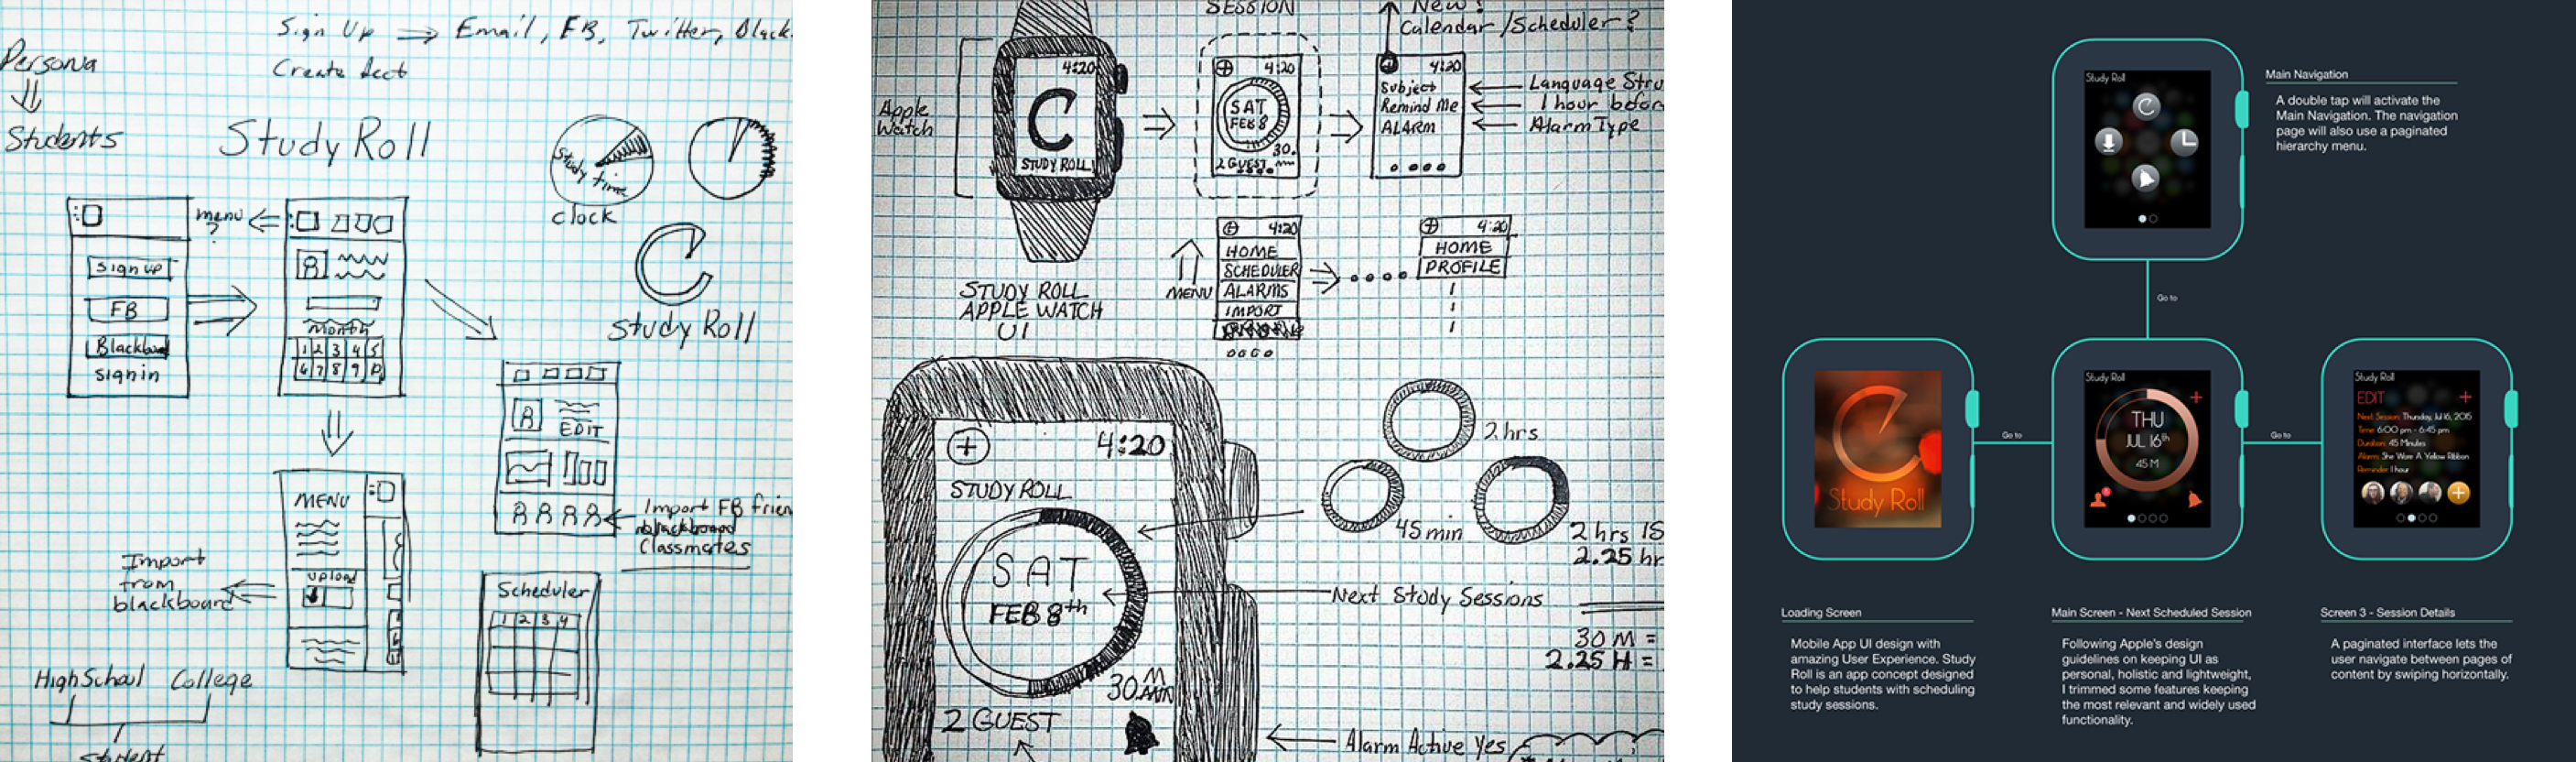 Sign Up ⇒ Email, FB, Twitter, Black
Create Acct
Persona
Students
Study Roll
Study time
clock
Study Roll
menu
?
Sign up
FB
Blackboard
signin
Month
1 2 3 4 5
6 7 8 9 10
EDIT
Import FB frien
blackboard
Classmates
MENU
upload
Import
from
blackboard
Scheduler
1 2 3 4
High School College
Student
SESSION
New?
Calendar/Scheduler?
Apple
Watch
4:20
STUDY ROLL
4:20
SAT
FEB 8
30
2 GUEST
4:20
Subject
Remind Me
ALARM
Language Stru
1 hour befor
Alarm Type
STUDY ROLL
APPLE WATCH
UI
MENU
4:20
HOME
SCHEDULER
ALARMS
IMPORT
4:20
HOME
PROFILE
4:20
STUDY ROLL
SAT
FEB 8th
30 MIN
2 GUEST
2 hrs
45 min
2 hrs 15
2.25 hr
Next Study Sessions
30 M =
2.25 H =
Alarm Active Yes
Study Roll
Main Navigation
A double tap will activate the
Main Navigation. The navigation
page will also use a paginated
hierarchy menu.
Go to
Study Roll
Go to
Study Roll
THU
JUL 16th
45 M
Go to
Study Roll
EDIT
Next Session: Thursday, Jul 16, 2015
Time: 6:00 pm - 6:45 pm
Duration: 45 Minutes
Alarm: She Wore A Yellow Ribbon
Reminder: 1 hour
Loading Screen
Mobile App UI design with
amazing User Experience. Study
Roll is an app concept designed
to help students with scheduling
study sessions.
Main Screen - Next Scheduled Session
Following Apple's design
guidelines on keeping UI as
personal, holistic and lightweight,
I trimmed some features keeping
the most relevant and widely used
functionality.
Screen 3 - Session Details
A paginated interface lets the
user navigate between pages of
content by swiping horizontally.